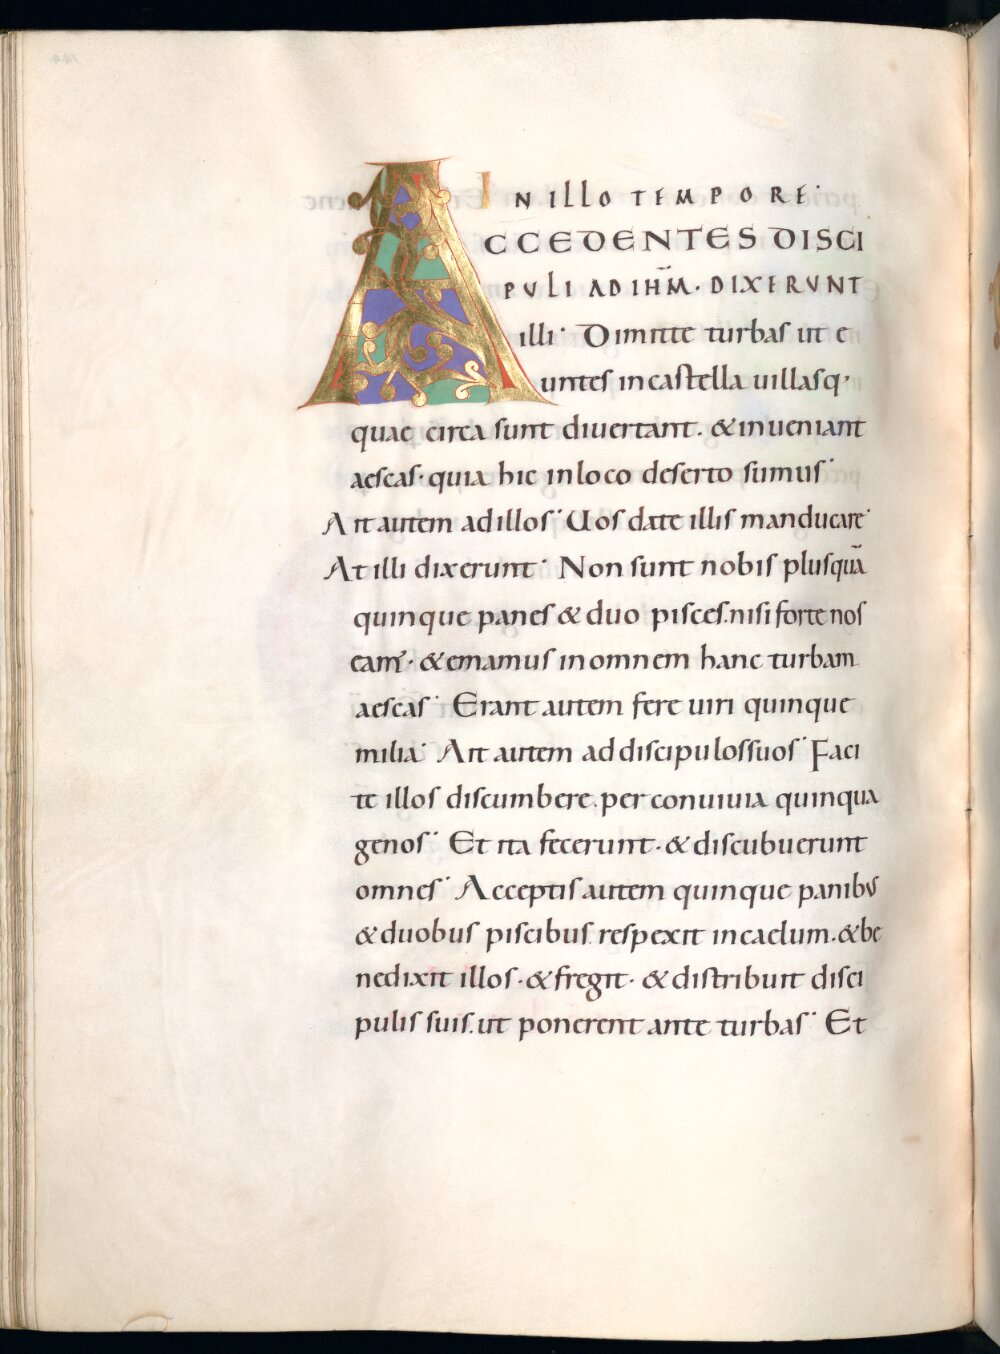 IN ILLO TEMPORE·
ACCEDENTES DISCI
PULI AD IHM̅· DIXERUNT
illi· Dimitte turbas ut e
untes in castella uillasq·
quae circa sunt diuertant· & inueniant
aescas· quia hic in loco deserto sumus·
Ait autem ad illos· Uos date illis manducare·
At illi dixerunt· Non sunt nobis plusquā
quinque panes & duo pisces· nisi forte nos
eam'· & emamus in omnem hanc turbam
aescas· Erant autem fere uiri quinque
milia· Ait autem ad discipulos suos· Faci
te illos discumbere· per conuiuia quinqua
genos· Et ita fecerunt· & discubuerunt
omnes· Acceptis autem quinque panibus
& duobus piscibus· respexit in caelum· & be
nedixit illos· & fregit· & distribuit disci
pulis suis· ut ponerent ante turbas· Et